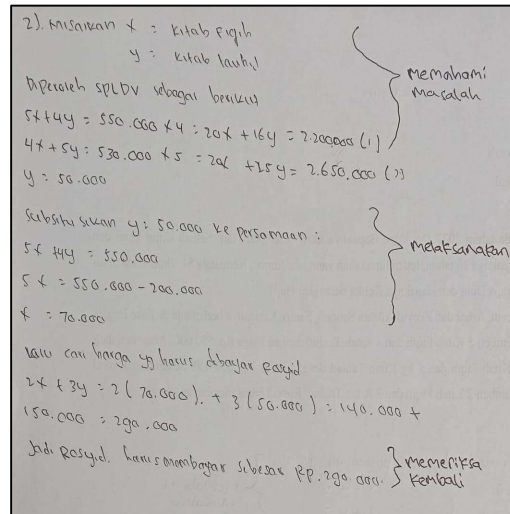 2). Misalkan x = kitab Fiqih
y = kitab tauhid
Diperoleh SPLDV sebagai berikut
5x+4y = 550.000 x 4 = 20x + 16y = 2.200.000 (1)
4x + 5y = 530.000 x 5 = 20x + 25y = 2.650.000 (2)
y = 50.000
memahami
masalah
Subsitusikan y = 50.000 ke persamaan :
5x +4y = 550.000
5x = 550.000 - 200.000
x = 70.000
melaksanakan
Lalu cari harga yg harus dibayar Rosyid
2x + 3y = 2 (70.000). + 3 (50.000) = 140.000 +
150.000 = 290.000
Jadi Rosyid. harus membayar sebesar Rp.290.000.
memeriksa
kembali